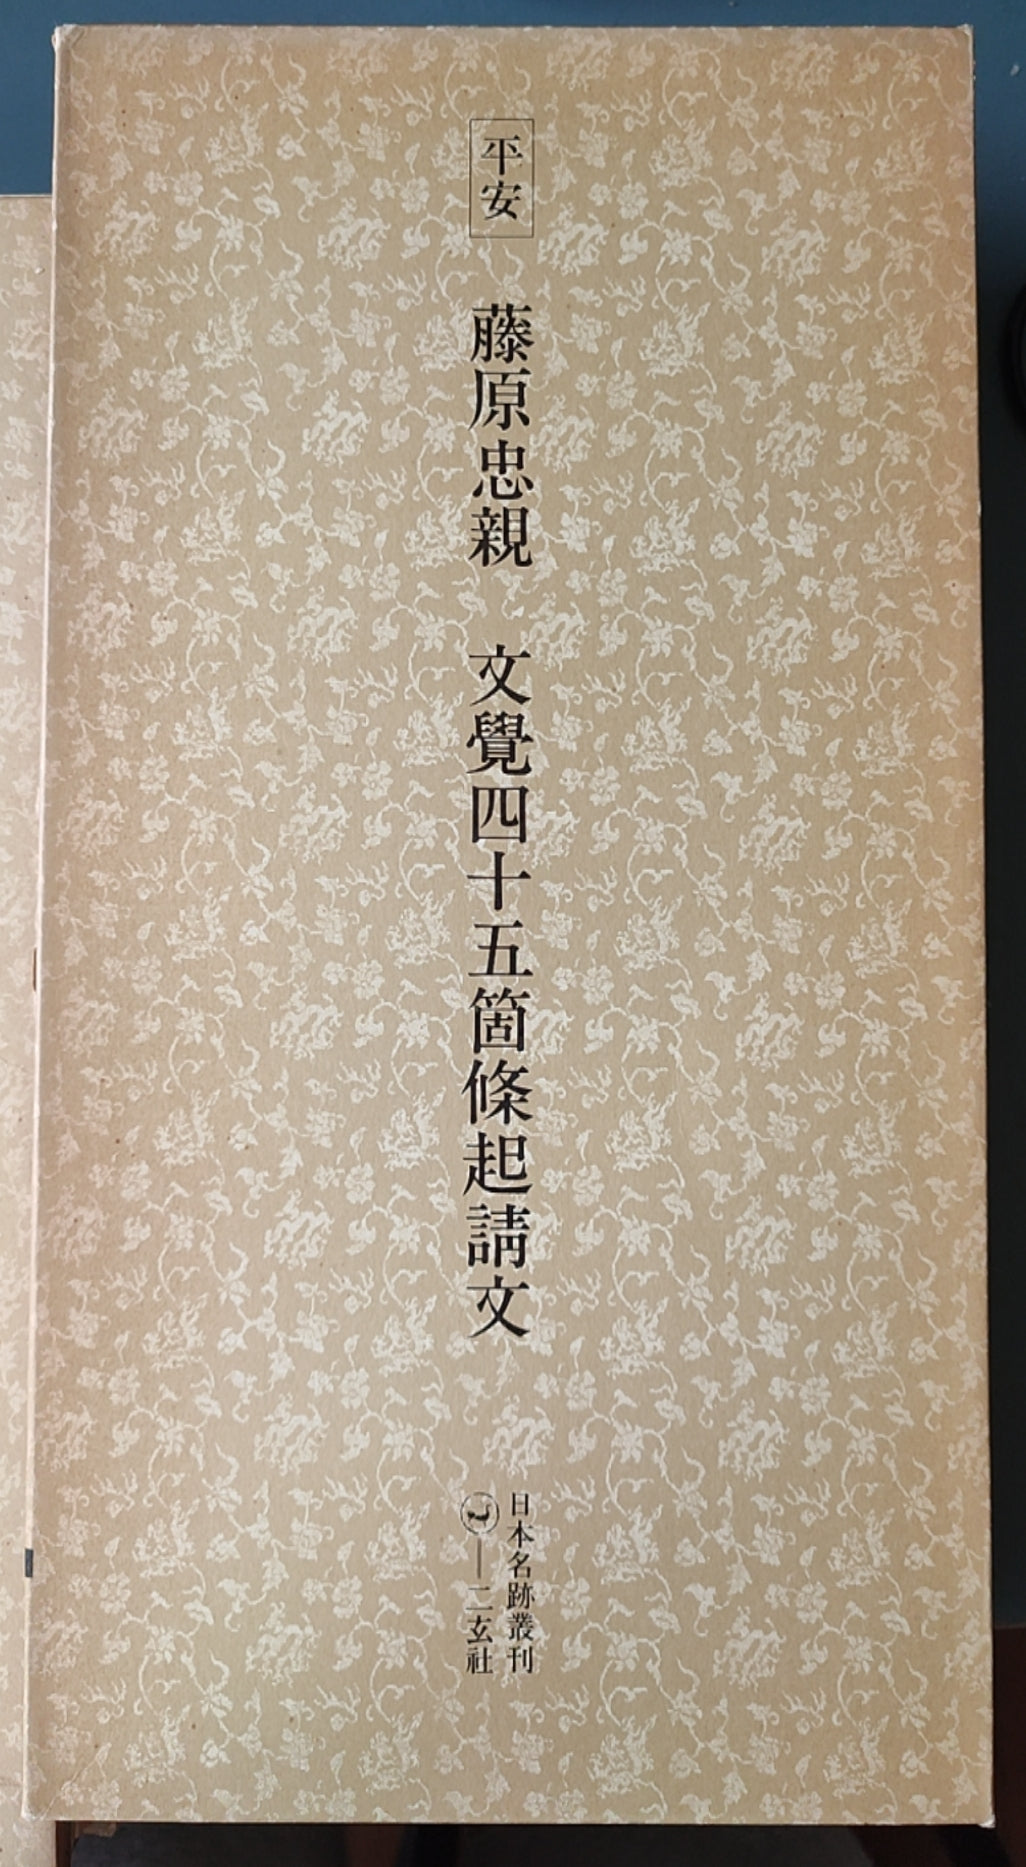 平安
藤原忠親 文覺四十五箇條起請文
日本名跡叢刊
二玄社